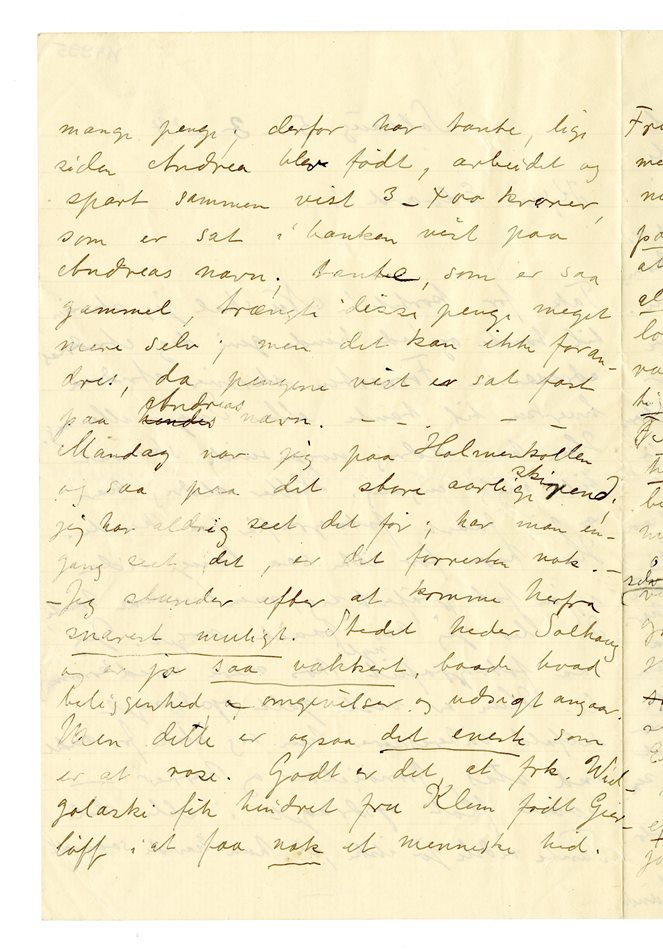 mange penge; derfor har tante, lige
siden Andrea blev født, arbeidet og
spart sammen vist 3–400 kroner,
som er sat i banken vist paa
Andreas navn; tante, som er saa
gammel, trængte disse penge meget
mere selv; men det kan ikke foran-
dres, da pengene vist er sat fast
paa hendes Andreas navn. – – . – –
Mandag var jeg paa Holmenkollen
og saa paa det store aarlige skirend;
jeg har aldrig seet det før; har man en-
gang seet det, er det forresten nok. –
– Jeg stunder efter at komme herfra
snarest muligt. Stedet heder Solhaug
og er jo saa vakkert, baade hvad
beliggenhed, omgivelser og udsigt angaar.
Men dette er ogsaa det eneste som
er at rose. Godt er det, at frk. Wid-
fik hindret fru Klem født Gier-
løff i at faa nok et menneske hid.